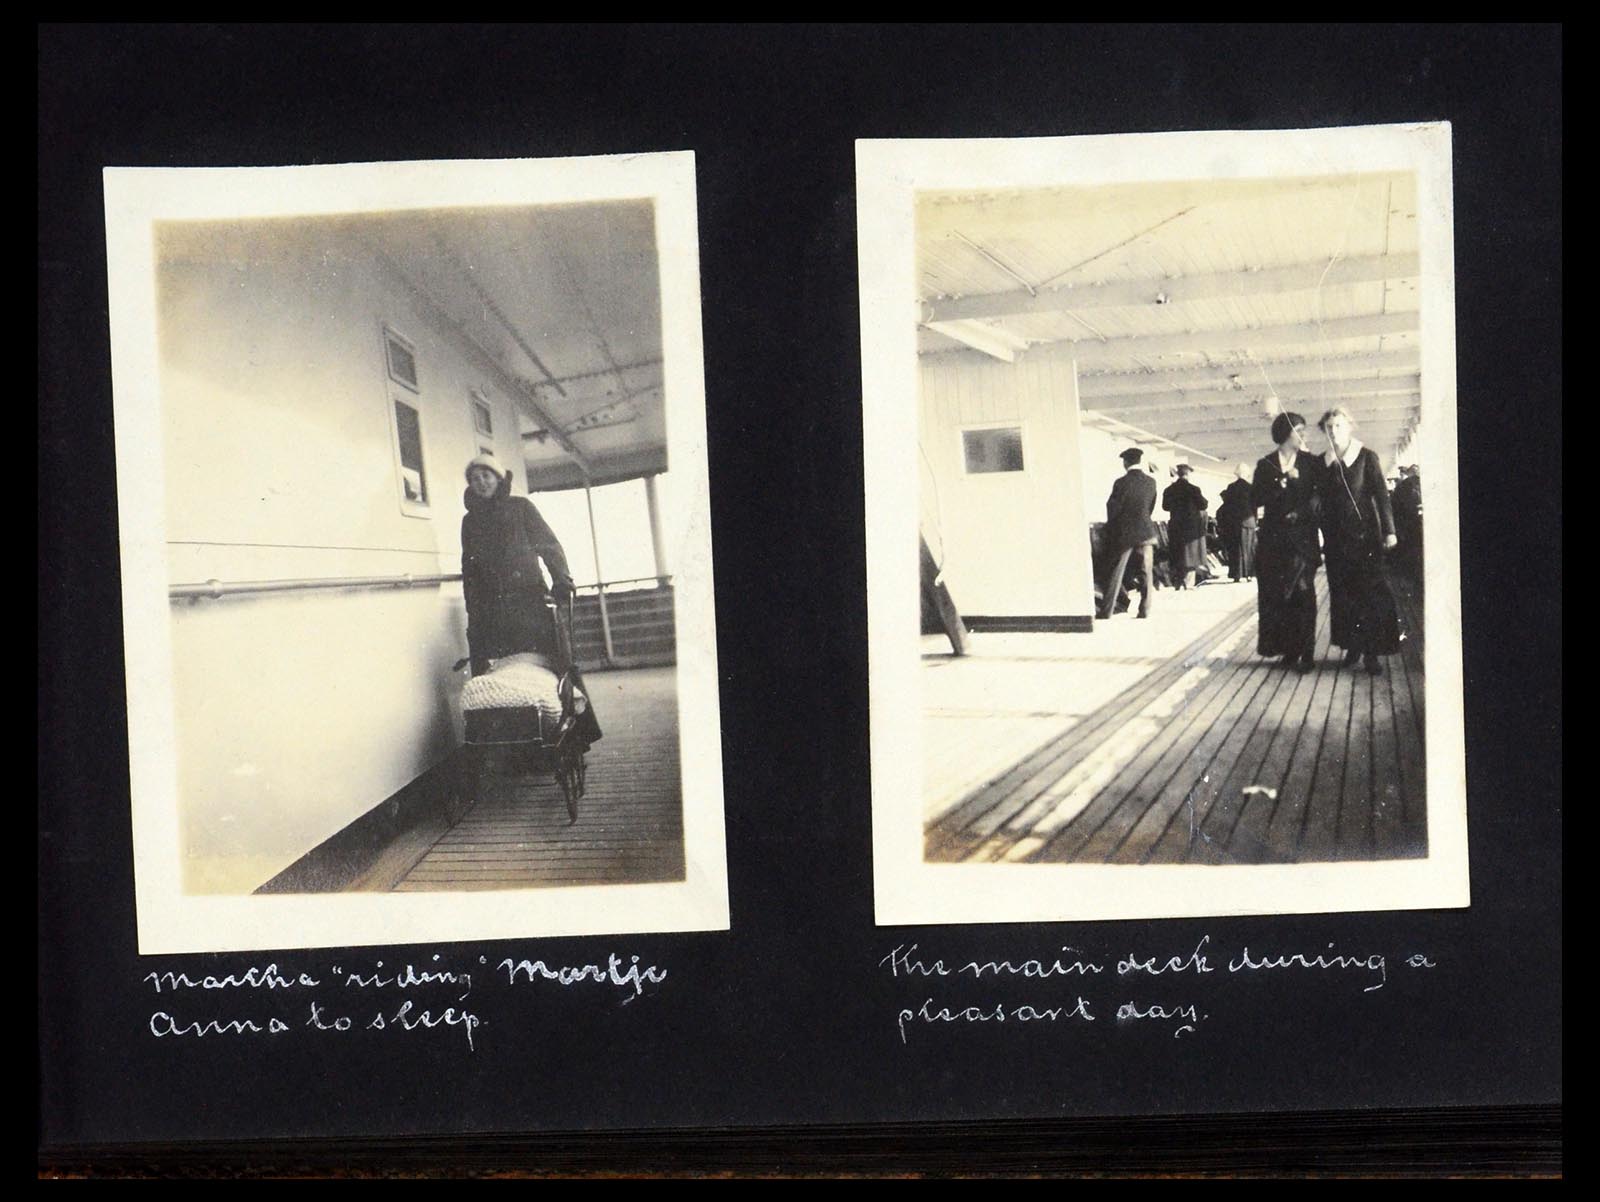 Martha "riding" Martje
Anna to sleep.
The main deck during a
pleasant day.